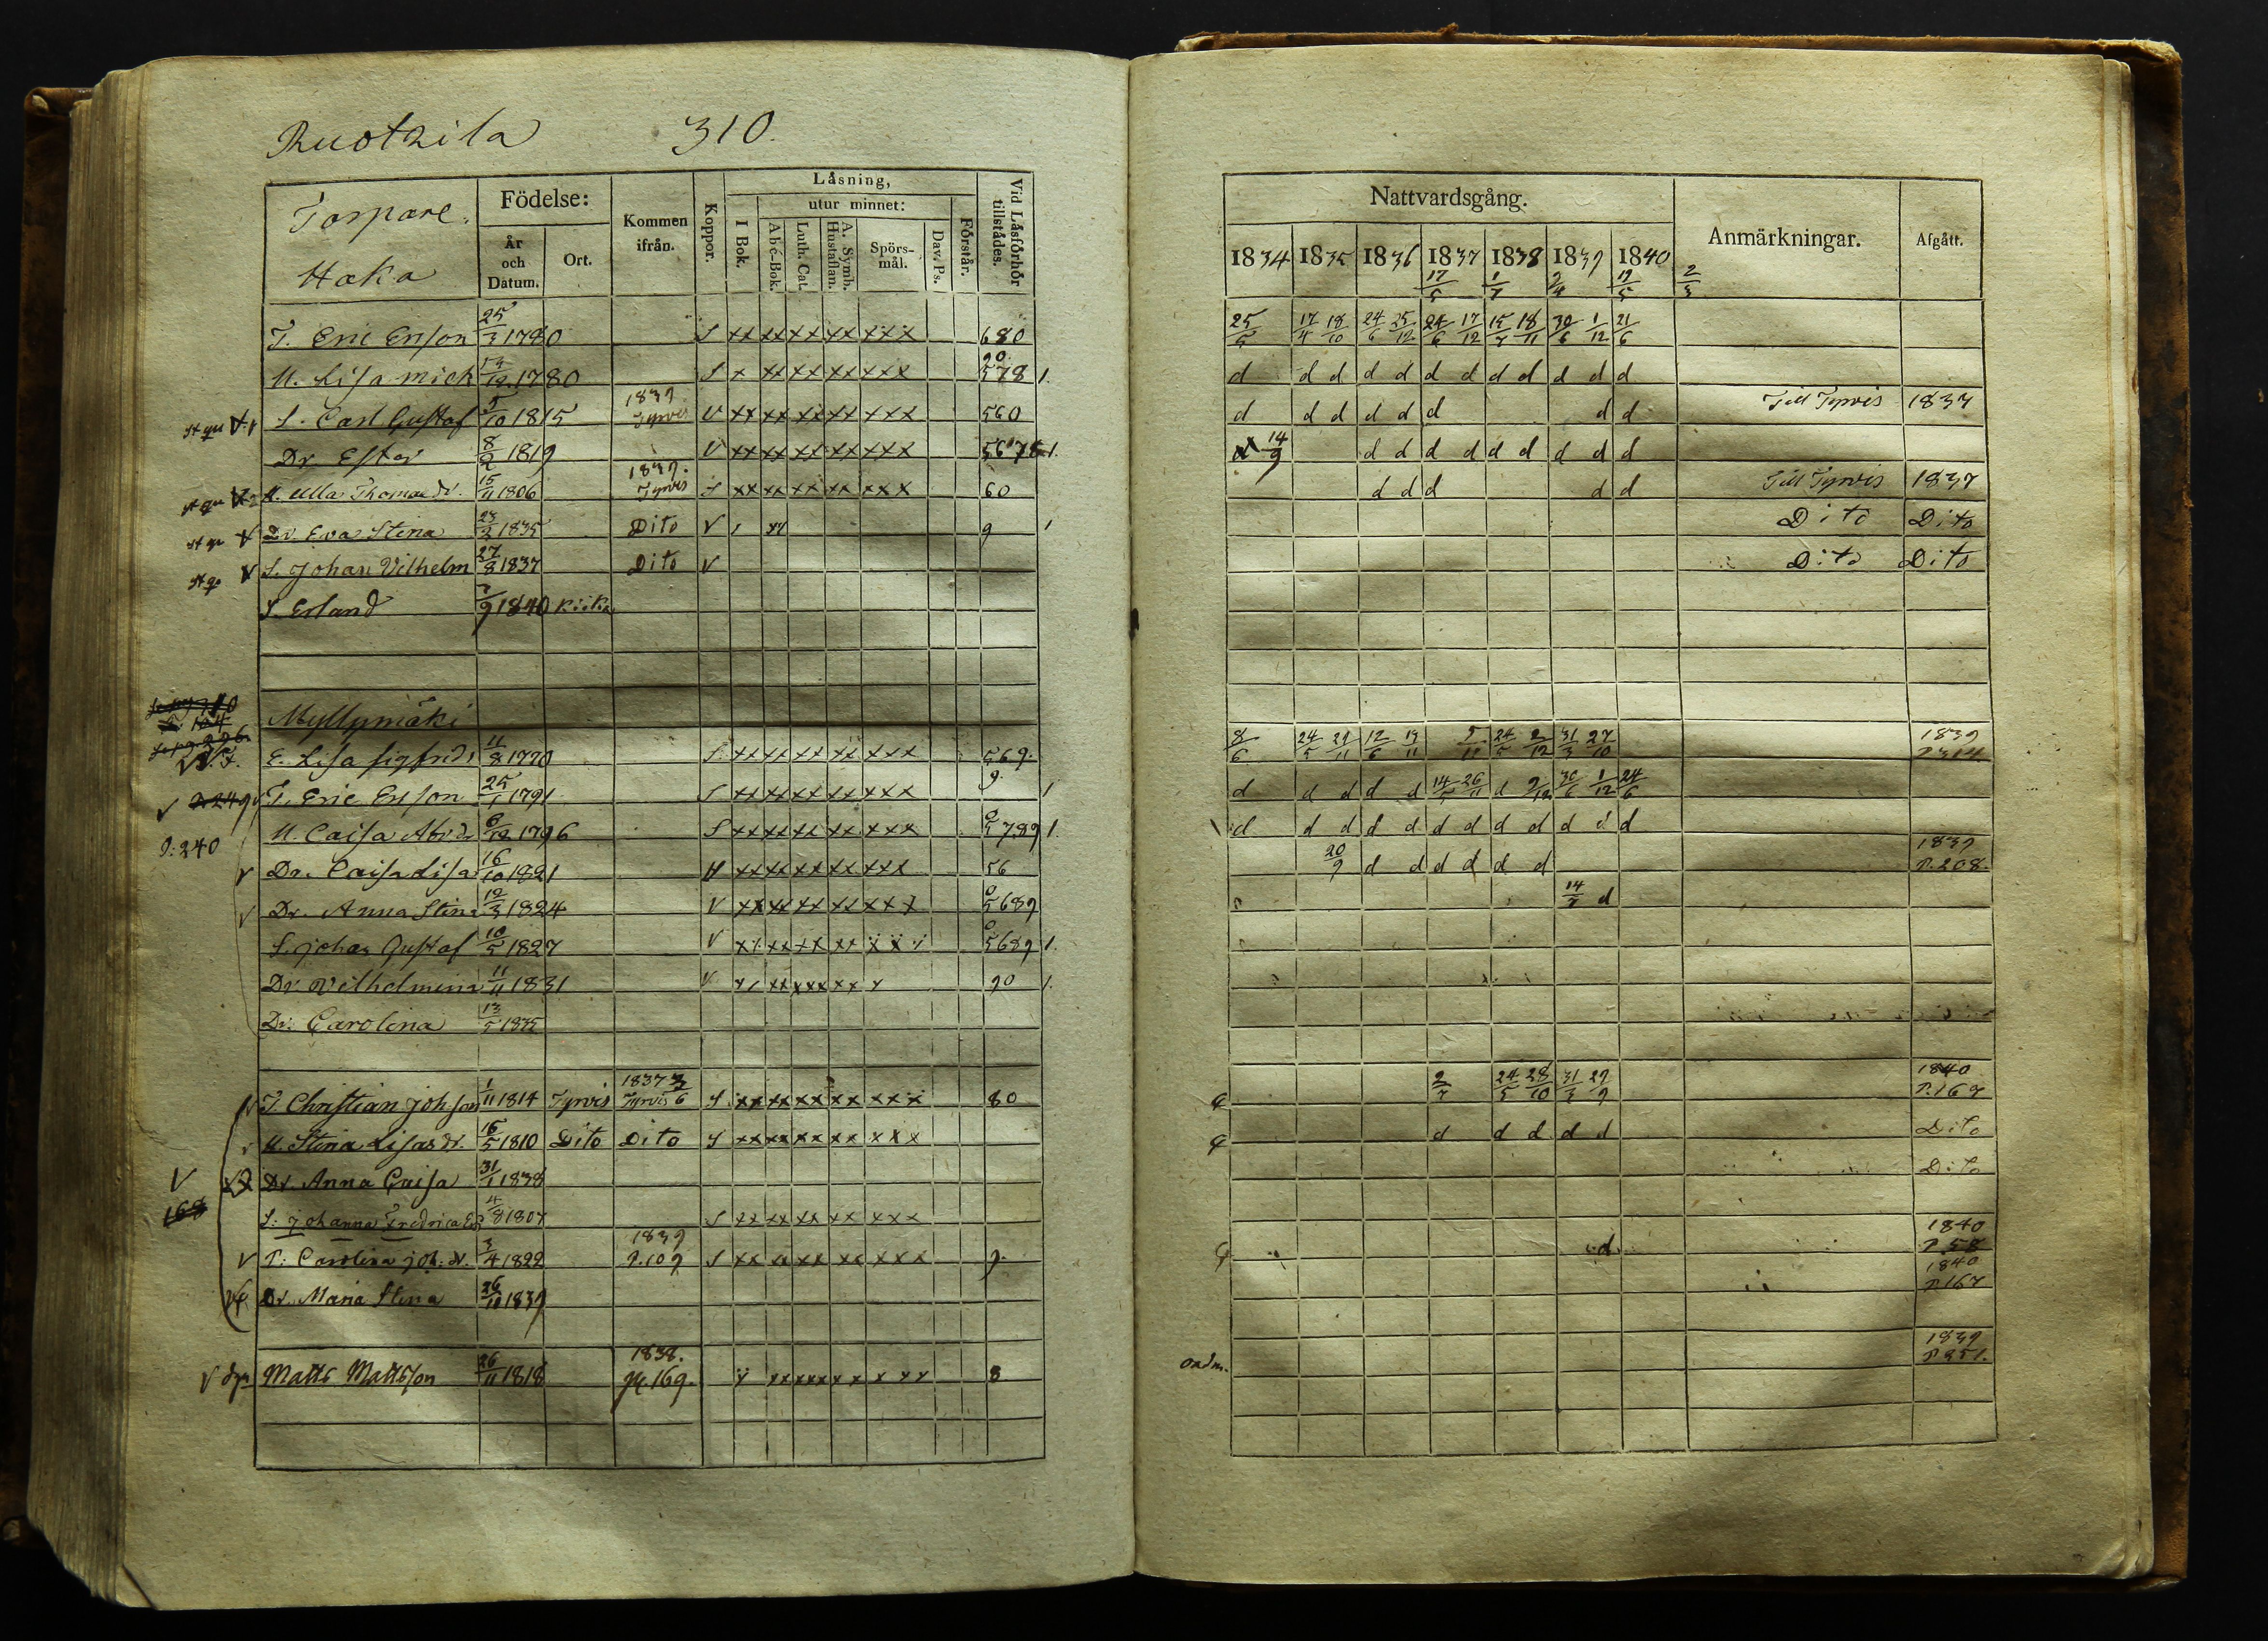 Ruotsila 310.
Torpare.
Haka
Födelse:
År och Datum.
Ort.
Kommen ifrån.
Koppor.
Låsning,
I Bok.
utur minnet:
Abé-Bok.
Luth. Cat.
A. Symb. Hustaflan.
Spörs-mål.
Dav. Ps.
Förstår.
Vid Låsförhör tillstådes.
T. Eric Erson 25/3 1780 S xx xx xx xx xxx 680
H. Lisa Mich 1780 S x xx xx xx xxx 578 1.
S. Carl Gustaf 5/10 1815 1839 Tyrvis V xx xx xx xx xxx 560
Dr Ester 8/2 1819 V xx xx xx xx xxx 5678 1.
H. Ulla Thomas dr. 15/11 1806 1839. Tyrvis S xx xx xx xx xxx 60
Dr. Eva Stina 23/2 1835 Dito V 9 1
S. Johan Vilhelm 27/8 1837 Dito V
S. Erland 1840 Kiika
Myllymäki
E. Lisa Sigfrids 11/8 1770 S. xx xx xx xx xxx 569.
T. Eric Erson 25/1 1791 S xx xx xx xx xxx 1
H. Caisa Abr dr 6/12 1796 S xx xx xx xx xxx 789 1.
P. 240
Dr. Caisa Lisa 16/10 1821 xx xx xx xx xxx 56
Dr. Anna Stina 12/3 1824 V xx xx xx xx xxx 5689
S. Johan Gustaf 10/5 1827 V xx xx xx 5689 1.
Dr Vilhelmina 11/11 1831 V 90 1.
Dr. Carolina 13/5 1835
T. Christian Johsson 1/11 1814 Tyrvis 1837 3/6 Tyrvis S xx xx xx xx xxx 80
H. Stina Lisas dr. 16/5 1810 Dito Dito S xx xx xx xx xxx
Dr. Anna Caisa 31/1 1838
168
S: Johanna Fredrica 4/8 1807 S xx xx xx xx xxx
P: Carolina Joh: dr. 3/4 1822 1839 P. 109 S xx xx xx xx xxx 9.
Dr. Maria Stina 26/10 1839
Matts Mattsson 26/11 1818 1838. 169. 8
Nattvardsgång.
Anmärkningar.
Afgått.
1834 1835 1836 1837 1838 1839 1840
17/5 1/7 2/4 12/5 2/3
25/5 17/4 18/10 24/6 25/12 24/6 17/12 15/7 18/11 30/6 1/12 21/6
d d d d d d d d d d d d
d d d d d d d d Till Tyrvis 1837
14/9 d d d d d d d d d
d d d d d Till Tyrvis 1837
Dito Dito
Dito Dito
8/6 24/5 12/6 31/3 27/10 1839 P. 314
d d d d d 14/5 26/11 d 30/6 1/12 24/6
d d d d d d d d d d d d
20/9 d d d d d d 1839 P. 208.
14/7 d
2/7 24/5 28/10 31/3 29/9 1840 P. 167
d d d d d Dito
Dito
d. 1840 P. 58
1840 P. 167
1839 P. 351.